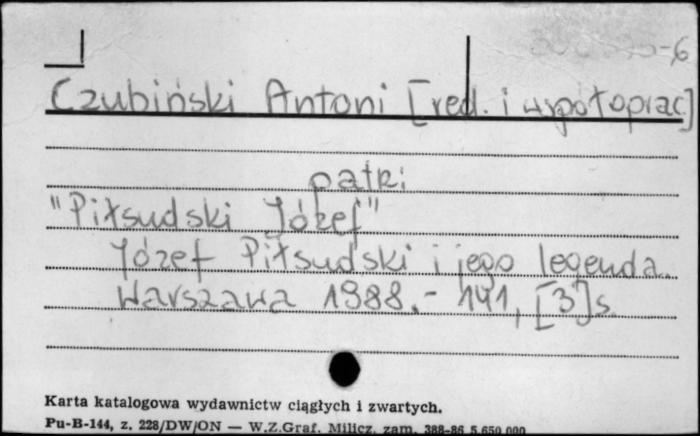 Czubiński Antoni [red. i współoprac.]
patrz
"Piłsudski Józef"
Józef Piłsudski i jego legenda.
Warszawa 1988.- 141, [3] s.
Karta katalogowa wydawnictw ciągłych i zwartych.
Pu-B-144, z. 228/DW/ON — W.Z.Graf. Milicz, zam. 388-86 5.650.000